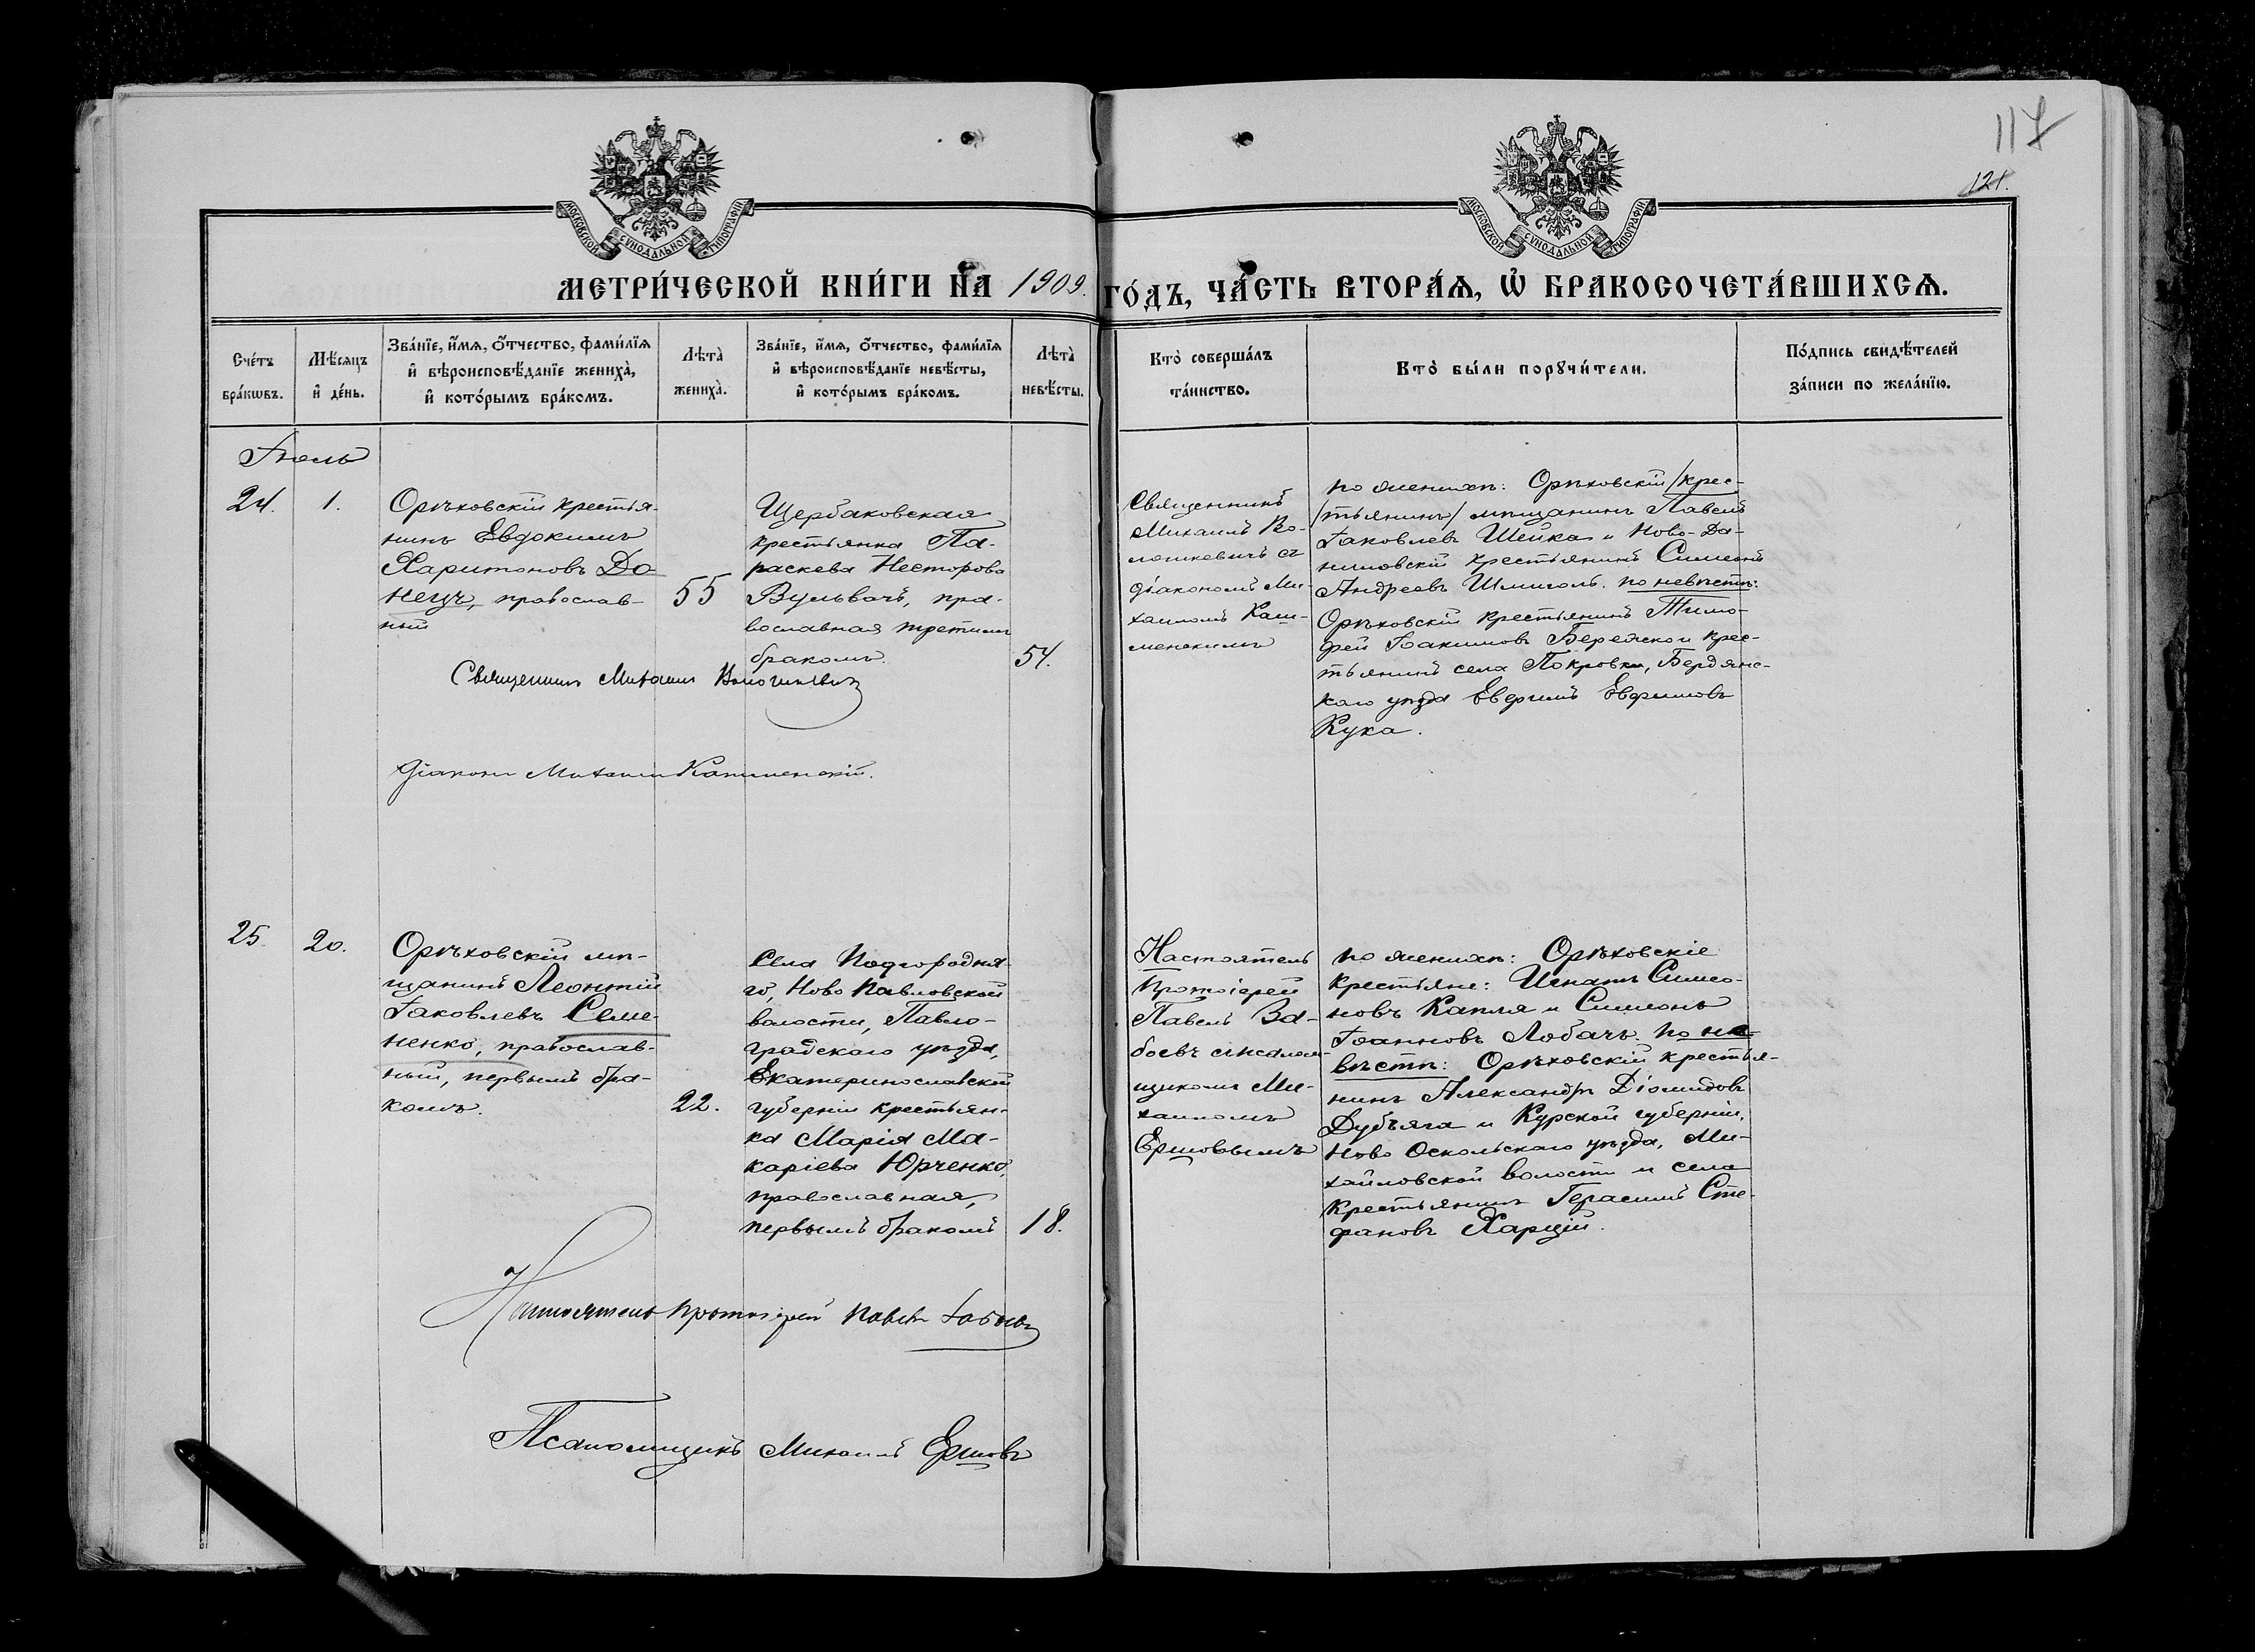 117
121.
МОСКОВСКОЙ СѴНОДАЛЬНОЙ ТИПОГРАФІИ
МОСКОВСКОЙ СѴНОДАЛЬНОЙ ТИПОГРАФІИ
МЕТРИ́ЧЕСКОЙ КНИ́ГИ НА 1909. ГО́ДЪ, ЧА́СТЬ ВТОРА́Ѧ, Ѽ БРАКОСОЧЕТА́ВШИХСѦ.
Сче́тъ
бра́кѡвъ.
Мѣ́сѧцъ
и҆ де́нь.
Зва́нїе, и҆́мѧ, ѻ҆́тчество, фами́лїѧ
и҆ вѣроисповѣ́данїе жениха̀,
и҆ кото́рымъ бра́комъ.
Лѣта̀
жениха̀.
Зва́нїе, и҆́мѧ, ѻ҆́тчество, фами́лїѧ
и҆ вѣроисповѣ́данїе невѣ́сты,
и҆ кото́рымъ бра́комъ.
Лѣта̀
невѣ́сты.
Кто̀ соверша́лъ
та́инство.
Кто̀ бы́ли порꙋчи́тели.
По́дпись свидѣ́телей
за́писи по жела́нїю.
Іюль
24.
1.
Орѣховскій крестья-
нинъ Евдокимъ
Харитоновъ До-
нецъ, православ-
ный
55
Щербаковская
крестьянка Па-
раскева Несторова
Вульвачъ, пра-
вославная третьимъ
бракомъ.
54.
Священникъ
Михаилъ Во-
лошкевичъ съ
діакономъ Ми-
хаиломъ Каш-
менскимъ
по женихѣ: Орѣховскій /крес-
/тьянинъ/ мѣщанинъ Павелъ
Іаковлевъ Шейка и Ново-Да-
ниловскій крестьянинъ Симеонъ
Андреевъ Шмиголь. по невѣстѣ:
Орѣховскій крестьянинъ Тимо-
фей Іоакимовъ Бережной и крес-
тьянинъ села Покровки, Бердянс-
каго уѣзда Евфимъ Евфимовъ
Кука.
Священникъ Михаилъ Волошкевичъ
Діаконъ Михаилъ Кашменскій.
25.
20.
Орѣховскій мѣ-
щанинъ Леонтій
Іаковлевъ Семе-
ненко, православ-
ный, первымъ бра-
комъ.
22.
Села Подгородня-
го, Ново Павловской
волости, Павло-
градскаго уѣзда,
Екатеринославской
губерніи крестьян-
ка Марія Ма-
каріева Юрченко,
православная,
первымъ бракомъ
18.
Настоятель
Протоіерей
Павелъ За-
боевъ съ псалом-
щикомъ Ми-
хаиломъ
Ершовымъ
по женихѣ: Орѣховскіе
крестьяне: Игнатъ Симео-
новъ Капля и Симеонъ
Іоанновъ Лобачъ. по не-
вѣстѣ: Орѣховскій крестья-
нинъ Александръ Діомидовъ
Дубъяга и Курской губерніи,
Ново Оскольскаго уѣзда, Ми-
хайловской волости и села
крестьянинъ Герасимъ Сте-
фановъ Харцій.
Настоятель Протоіерей Павелъ Забоевъ
Псаломщикъ Михаилъ Ершовъ